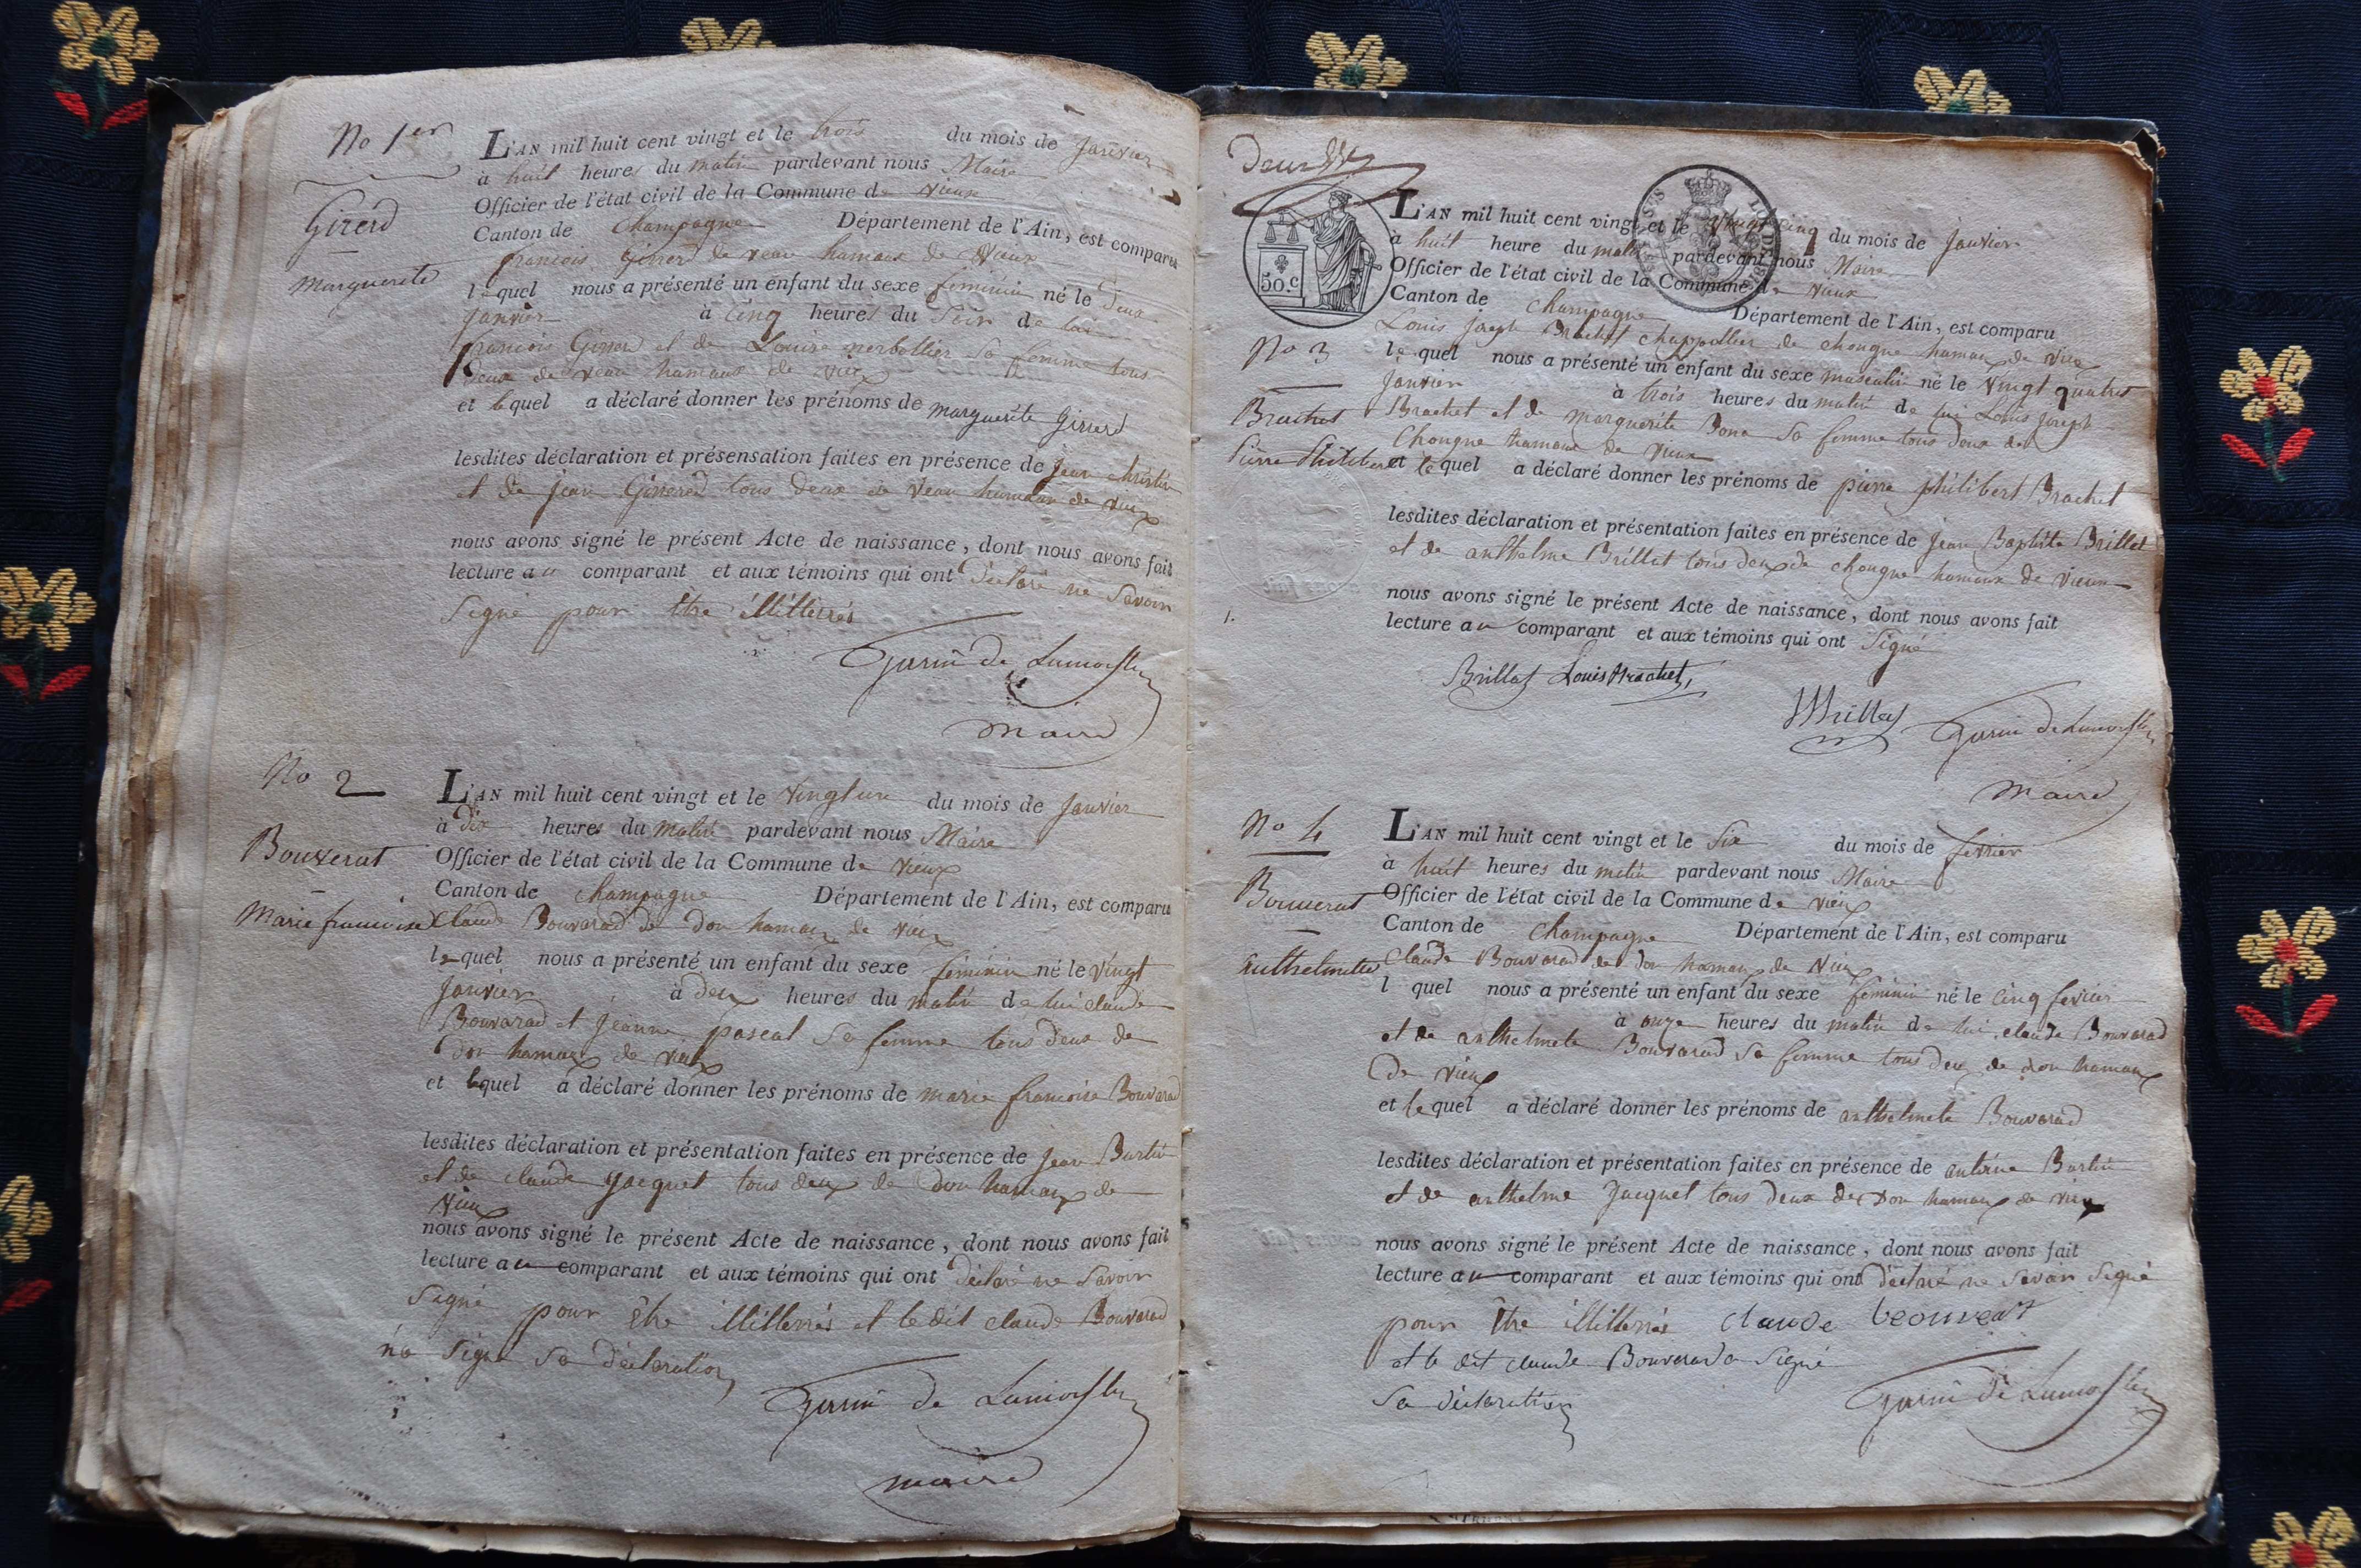 No 1er
Girerd
marguerite
L'AN mil huit cent vingt et le trois du mois de Janvier
à huit heures du matin pardevant nous Maire
Officier de l'état civil de la Commune de vieux
Canton de Champagne Département de l'Ain, est comparu
francois Girrerd de veau hamaux de vieux
lequel nous a présenté un enfant du sexe feminin né le deux
Janvier à cinq heures du Soir de lui
francois Girrerd et de Louise sa femme tous
deux de veau hamaux de vieux
et lequel a déclaré donner les prénoms de marguerite Girrerd
lesdites déclaration et présensation faites en présence de Jean
et de jean Girrerd tous deux de veau hamaux de vieux
nous avons signé le présent Acte de naissance, dont nous avons fait
lecture au comparant et aux témoins qui ont declaré ne Savoir
Signé pour être illitterrés
Garin de Lamorsten
maire
No 2
Bouverat
Marie francoise
L'AN mil huit cent vingt et le vingt un du mois de Janvier
à dix heures du matin pardevant nous Maire
Officier de l'état civil de la Commune de vieux
Canton de Champagne Département de l'Ain, est comparu
Claude Bouvarad de don hamaux de vieux
lequel nous a présenté un enfant du sexe féminin né le vingt
Janvier à deux heures du matin de lui claude
Bouvarad et Jeanne pascal sa femme tous deux de
don hamaux de vieux
et lequel a déclaré donner les prénoms de marie francoise Bouvarad
lesdites déclaration et présentation faites en présence de Jean Burtin
et de claude Jacquet tous deux de don hamaux de
vieux
nous avons signé le présent Acte de naissance, dont nous avons fait
lecture au comparant et aux témoins qui ont declaré ne Savoir
Signé pour être illitterrés et le dit claude Bouvarad
na Signé Sa déclaration
Garin de Lamorsten
maire
50.c
No 3
Brachet
Pierre Philibert
L'AN mil huit cent vingt et le vingt cinq du mois de Janvier
à huit heure du matin pardevant nous Maire
Officier de l'état civil de la Commune de vieux
Canton de Champagne Département de l'Ain, est comparu
Louis Joseph Brachet de chongne hamaux de vieux
lequel nous a présenté un enfant du sexe masculin né le vingt quatre
Janvier à trois heures du matin de lui Louis Joseph
Brachet et de marguerite Bona Sa femme tous deux de
Chongne hamaux de vieux
et lequel a déclaré donner les prénoms de pierre philibert Brachet
lesdites déclaration et présentation faites en présence de Jean Baptiste Brillat
et de anthelme Brillat tous deux de chongne hamaux de vieux
nous avons signé le présent Acte de naissance, dont nous avons fait
lecture au comparant et aux témoins qui ont Signé
Brillat Louis Brachet,
Brillat Garin de Lamorsten
maire
No 4
Bouverat
Anthelmette
L'AN mil huit cent vingt et le Six du mois de fevrier
à huit heures du matin pardevant nous Maire
Officier de l'état civil de la Commune de vieux
Canton de Champagne Département de l'Ain, est comparu
Claude Bouvarad de don hamaux de vieux
l quel nous a présenté un enfant du sexe feminin né le cinq fevrier
à onze heures du matin de lui claude Bouvarad
et de anthelmete Bouvarad Sa femme tous deux de don hamaux
de vieux
et lequel a déclaré donner les prénoms de anthelmete Bouvarad
lesdites déclaration et présentation faites en présence de antoine Burtin
et de anthelme Jacquet tous deux de Don hamaux de vieux
nous avons signé le présent Acte de naissance, dont nous avons fait
lecture au comparant et aux témoins qui ont declaré ne Savoir Signé
pour être illitterrés claude beouverat
et le dit claude Bouvarad a Signé
Sa déclaration
Garin de Lamorsten